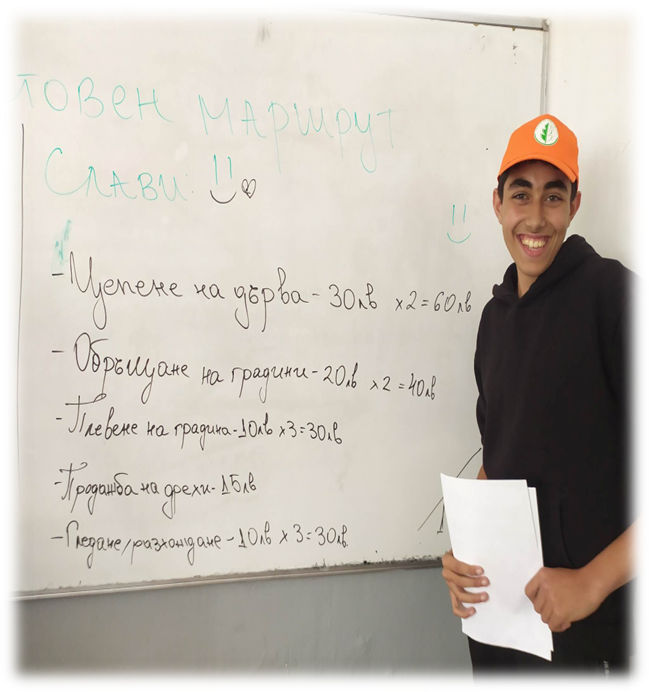 ТОВЕН МАРШРУТ
СЛАВИ:
- Цепене на дърва - 30лв x2 = 60лв
- Обръщане на градини - 20лв x2 = 40лв
- Плевене на градина - 10лв x3 = 30лв
- Продажба на дрехи - 15лв
- Гледане/разхождане - 10лв x3 = 30лв.